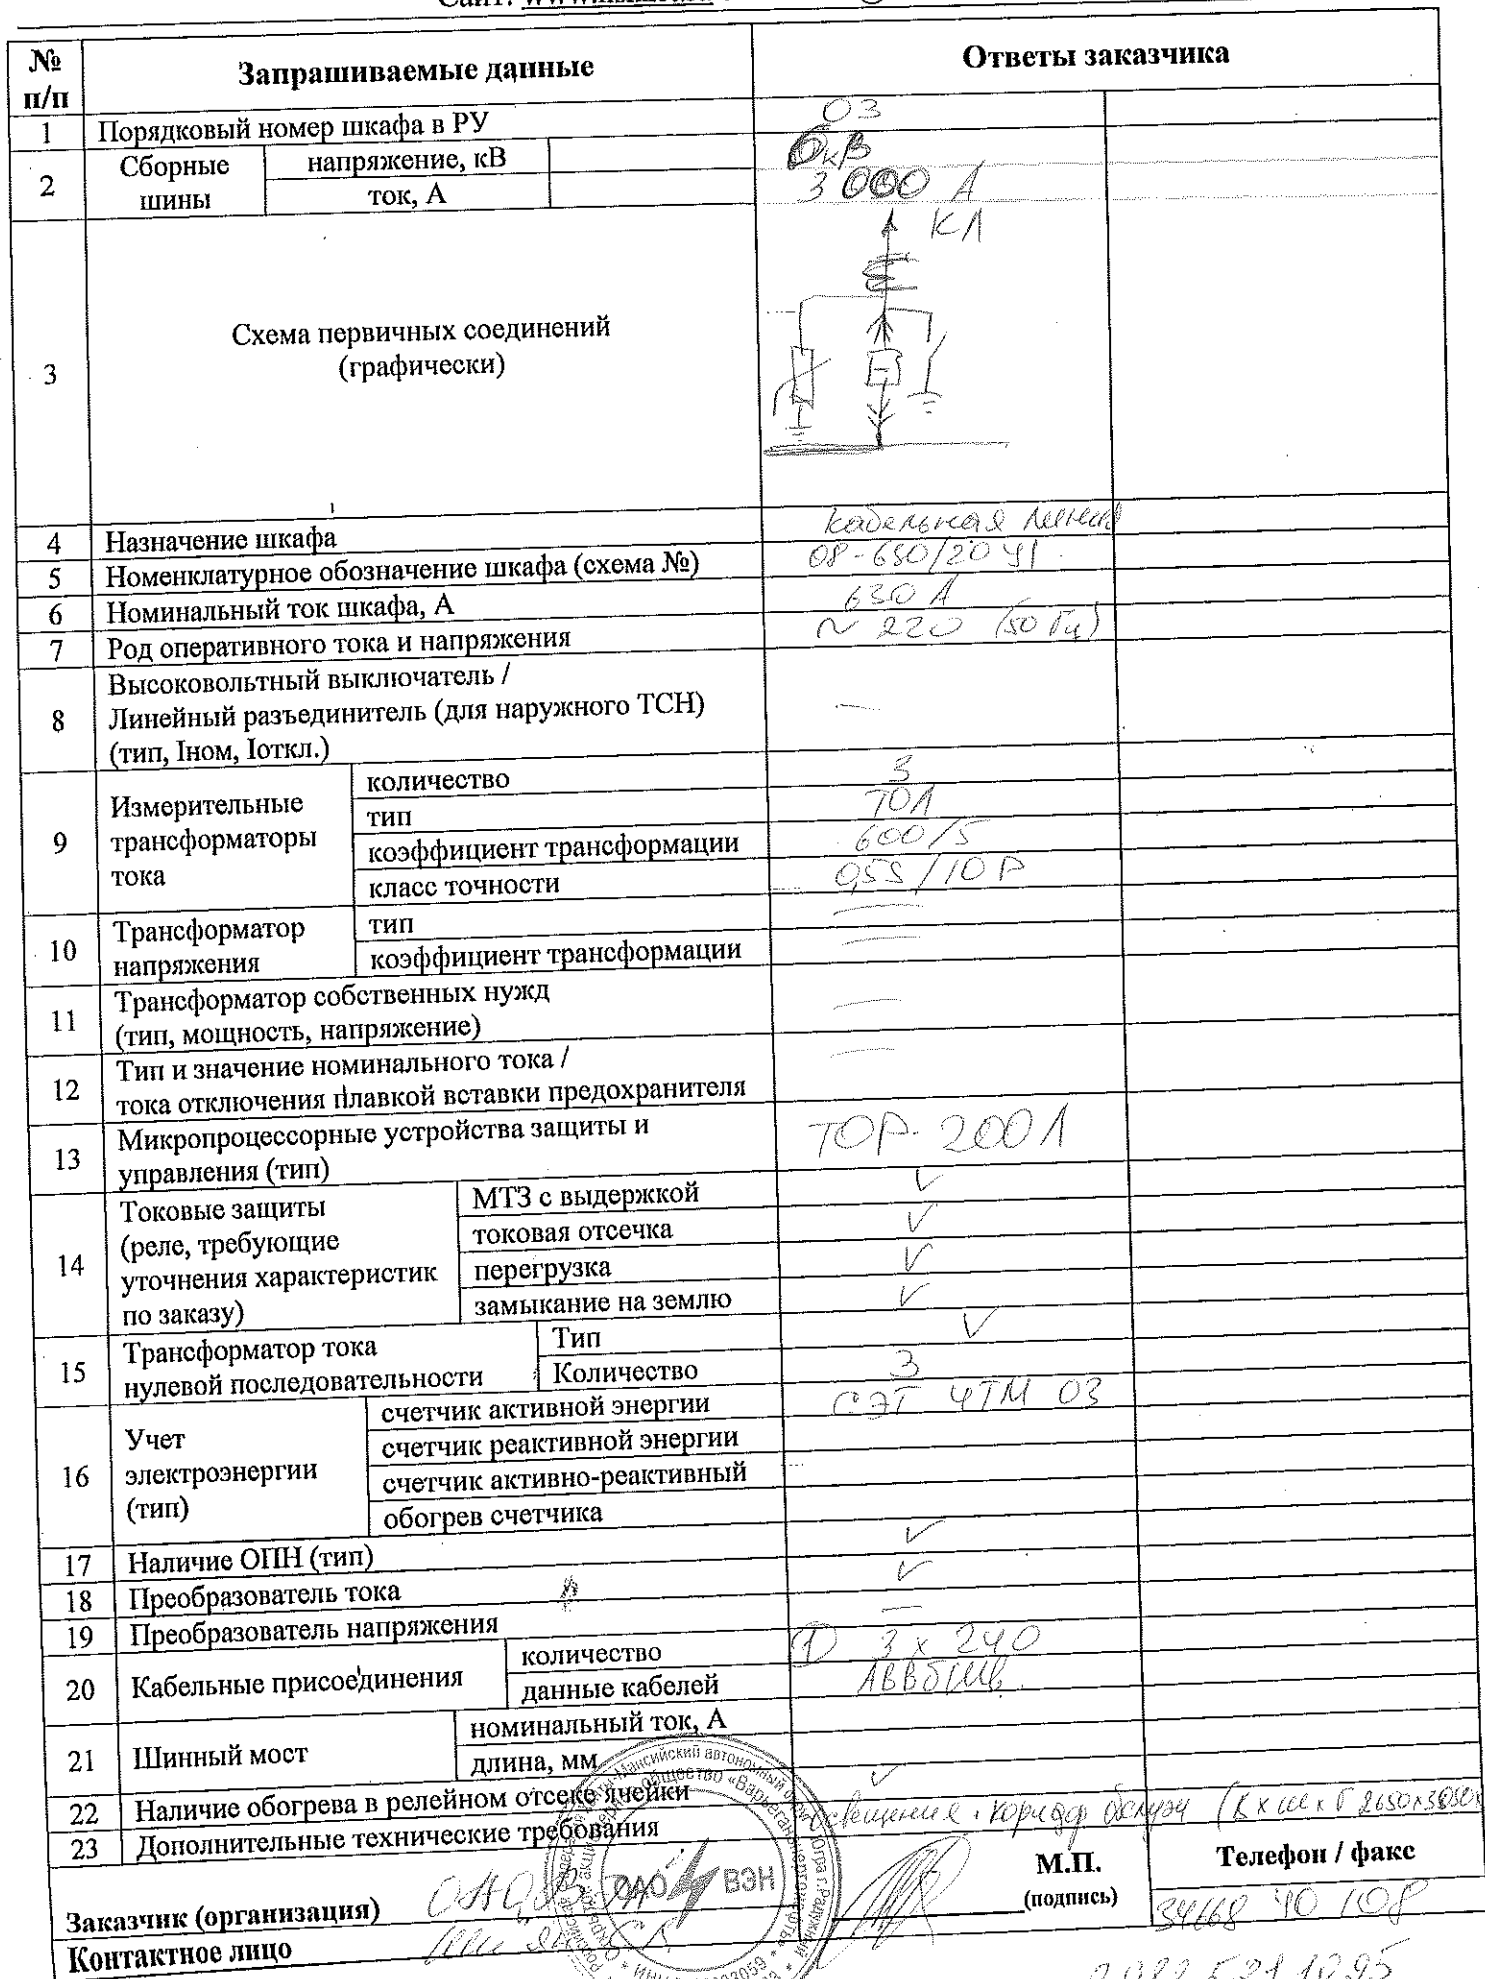 Сайт:
№ п/п
Запрашиваемые данные
Ответы заказчика
1 Порядковый номер шкафа в РУ 03
2 Сборные шины
напряжение, кВ кВ
ток, А 3000 А
3 Схема первичных соединений (графически)
КЛ
4 Назначение шкафа кабельная линия
5 Номенклатурное обозначение шкафа (схема №) 08-630/20 У1
6 Номинальный ток шкафа, А 630 А
7 Род оперативного тока и напряжения ~ 220 (50 Гц)
8 Высоковольтный выключатель /
Линейный разъединитель (для наружного ТСН)
(тип, Iном, Iоткл.) —
9 Измерительные трансформаторы тока
количество 3
тип ТОЛ
коэффициент трансформации 600/5
класс точности 0,5S/10Р
10 Трансформатор напряжения
тип —
коэффициент трансформации —
11 Трансформатор собственных нужд
(тип, мощность, напряжение) —
12 Тип и значение номинального тока /
тока отключения плавкой вставки предохранителя —
13 Микропроцессорные устройства защиты и
управления (тип) ТОР-200Л
14 Токовые защиты
(реле, требующие
уточнения характеристик
по заказу)
МТЗ с выдержкой ✓
токовая отсечка ✓
перегрузка ✓
замыкание на землю ✓
15 Трансформатор тока
нулевой последовательности
Тип ✓
Количество 3
16 Учет
электроэнергии
(тип)
счетчик активной энергии СЭТ 4ТМ 03
счетчик реактивной энергии
счетчик активно-реактивный
обогрев счетчика
17 Наличие ОПН (тип) ✓
18 Преобразователь тока ✓
19 Преобразователь напряжения —
20 Кабельные присоединения
количество 1 3 х 240
данные кабелей
21 Шинный мост
номинальный ток, А
длина, мм
22 Наличие обогрева в релейном отсеке ячейки ✓
23 Дополнительные технические требования освещение, коридор обслуж
Заказчик (организация) ОАО ВЭН
М.П.
(подпись)
Телефон / факс
34668 40 108
Контактное лицо
ОАО ВЭН
«Варьеганэнергонефть»